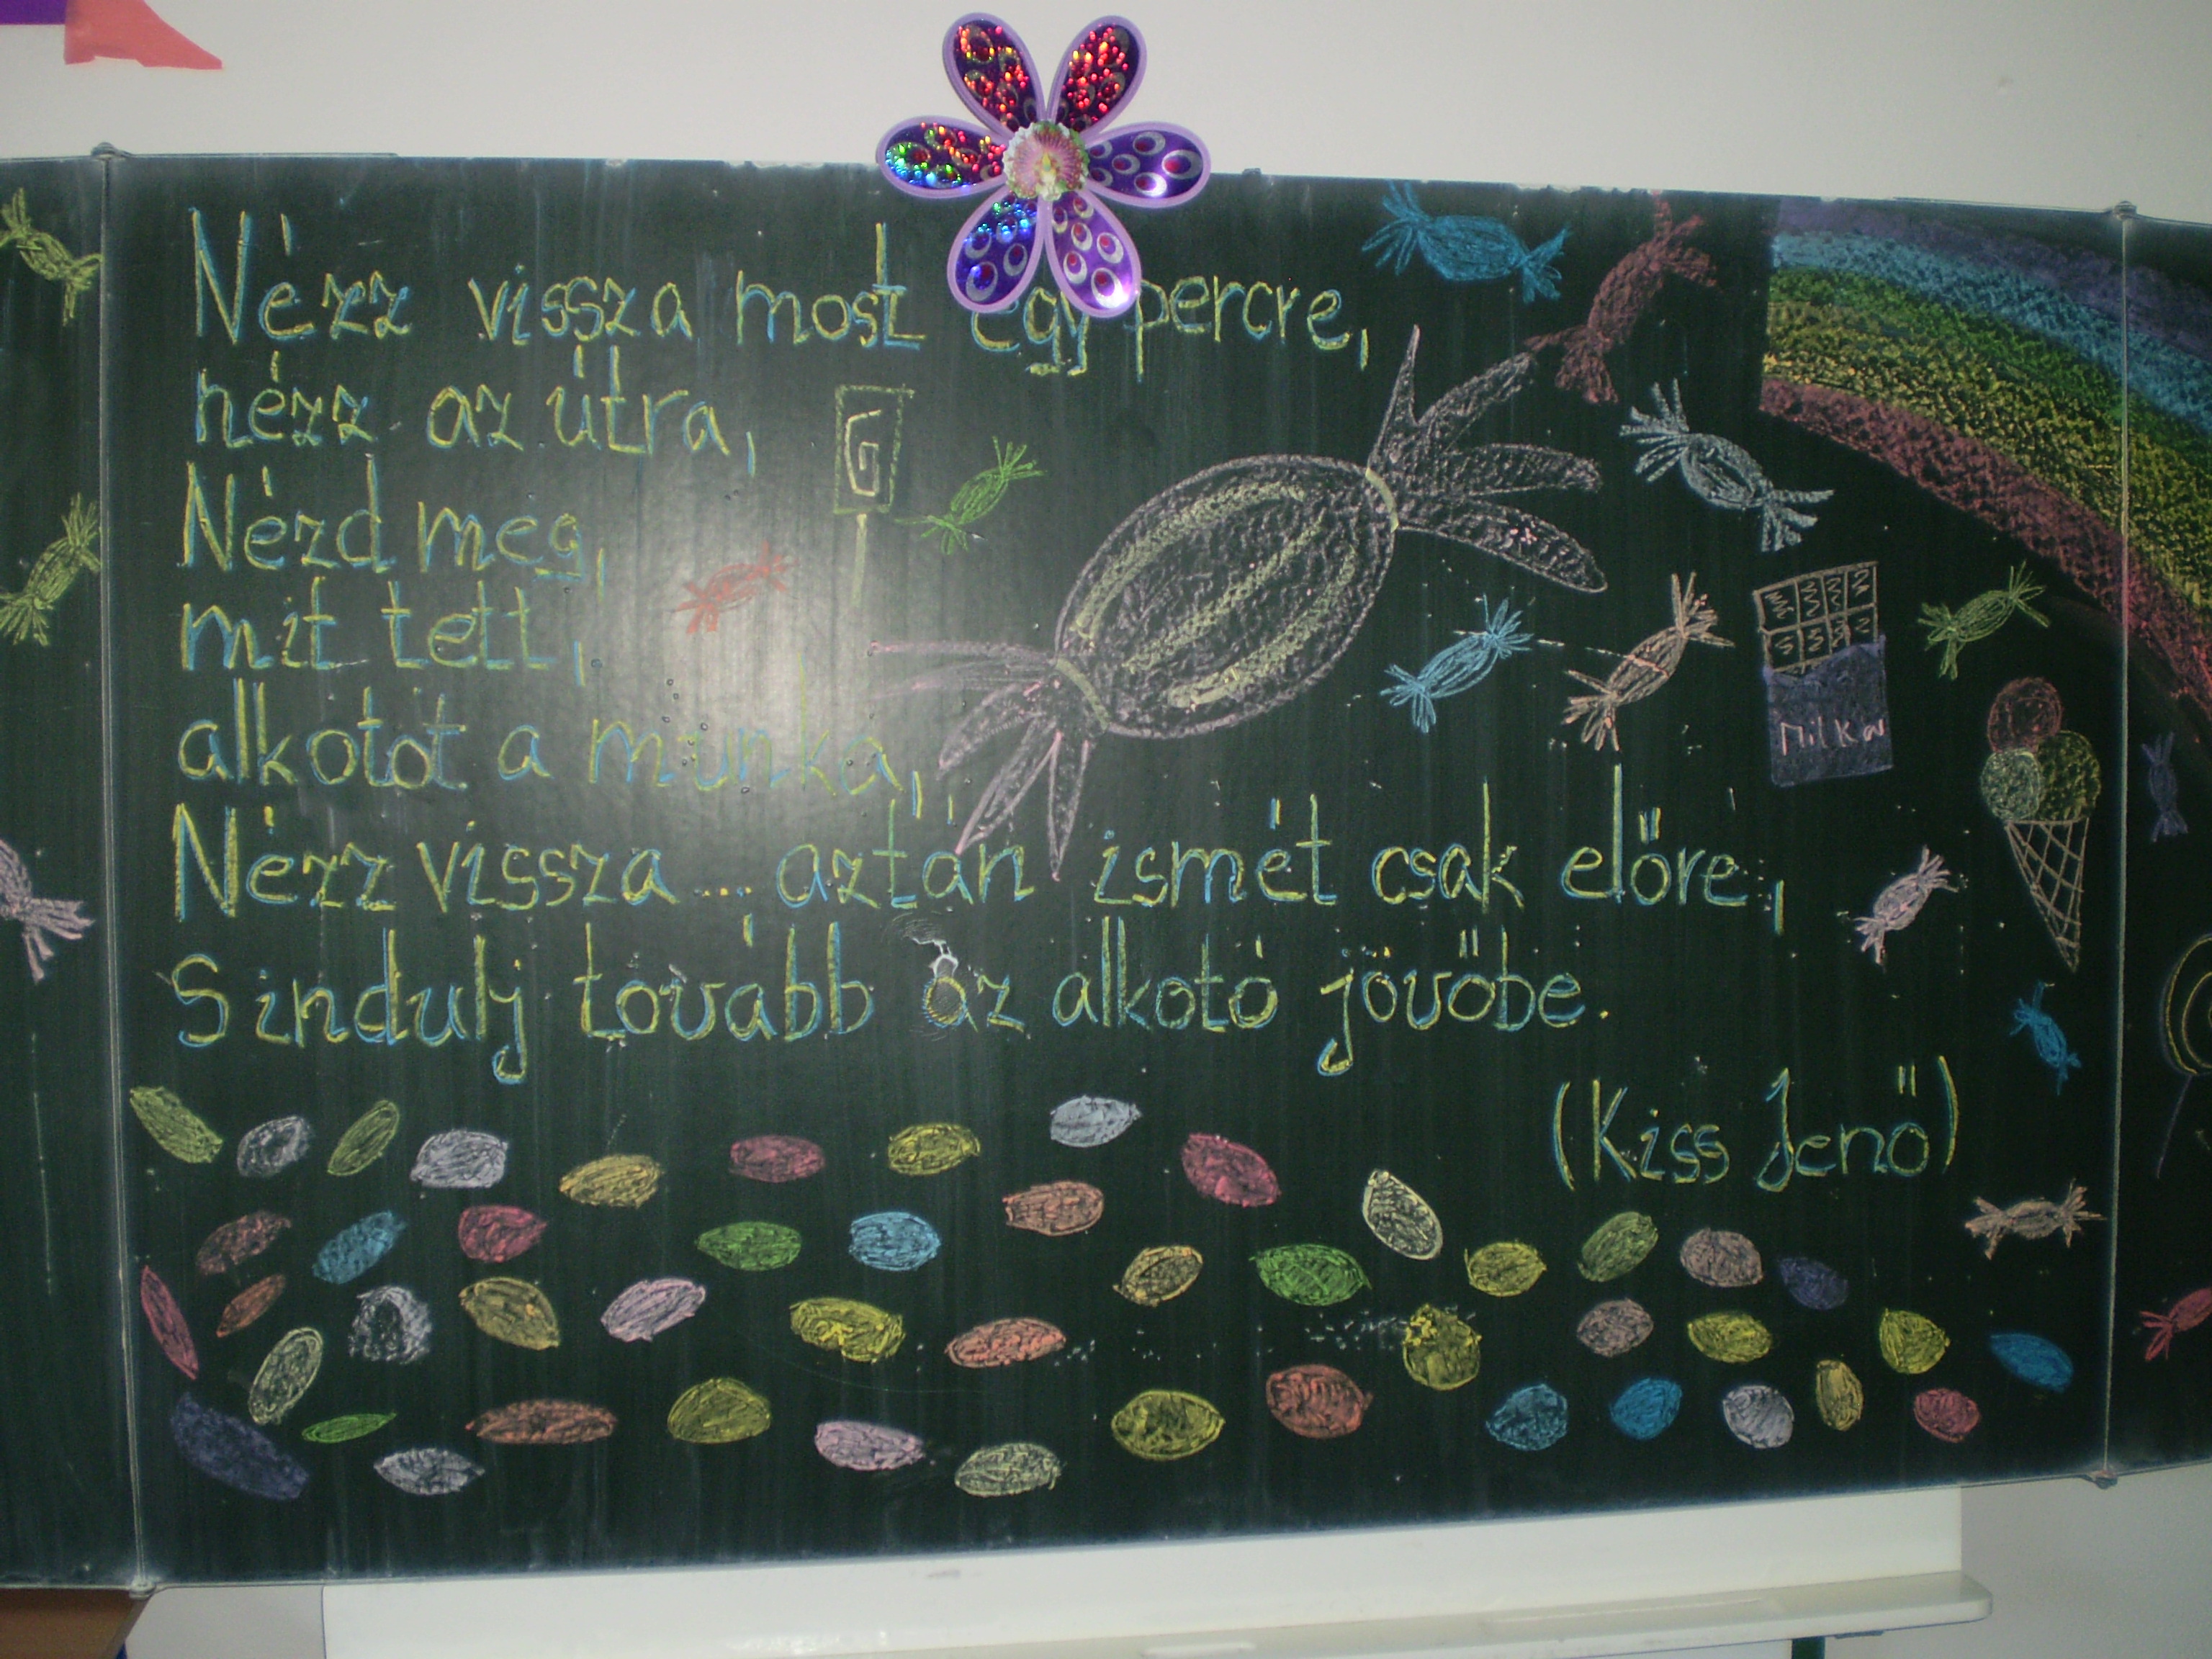 Nézz vissza most egy percre,
nézz az útra,
Nézd meg,
mit tett,
alkotot a munka,
Nézz vissza... aztán ismét csak előre,
Sindulj tovább az alkotó jövőbe.
(Kiss Jenő)
G
Milka